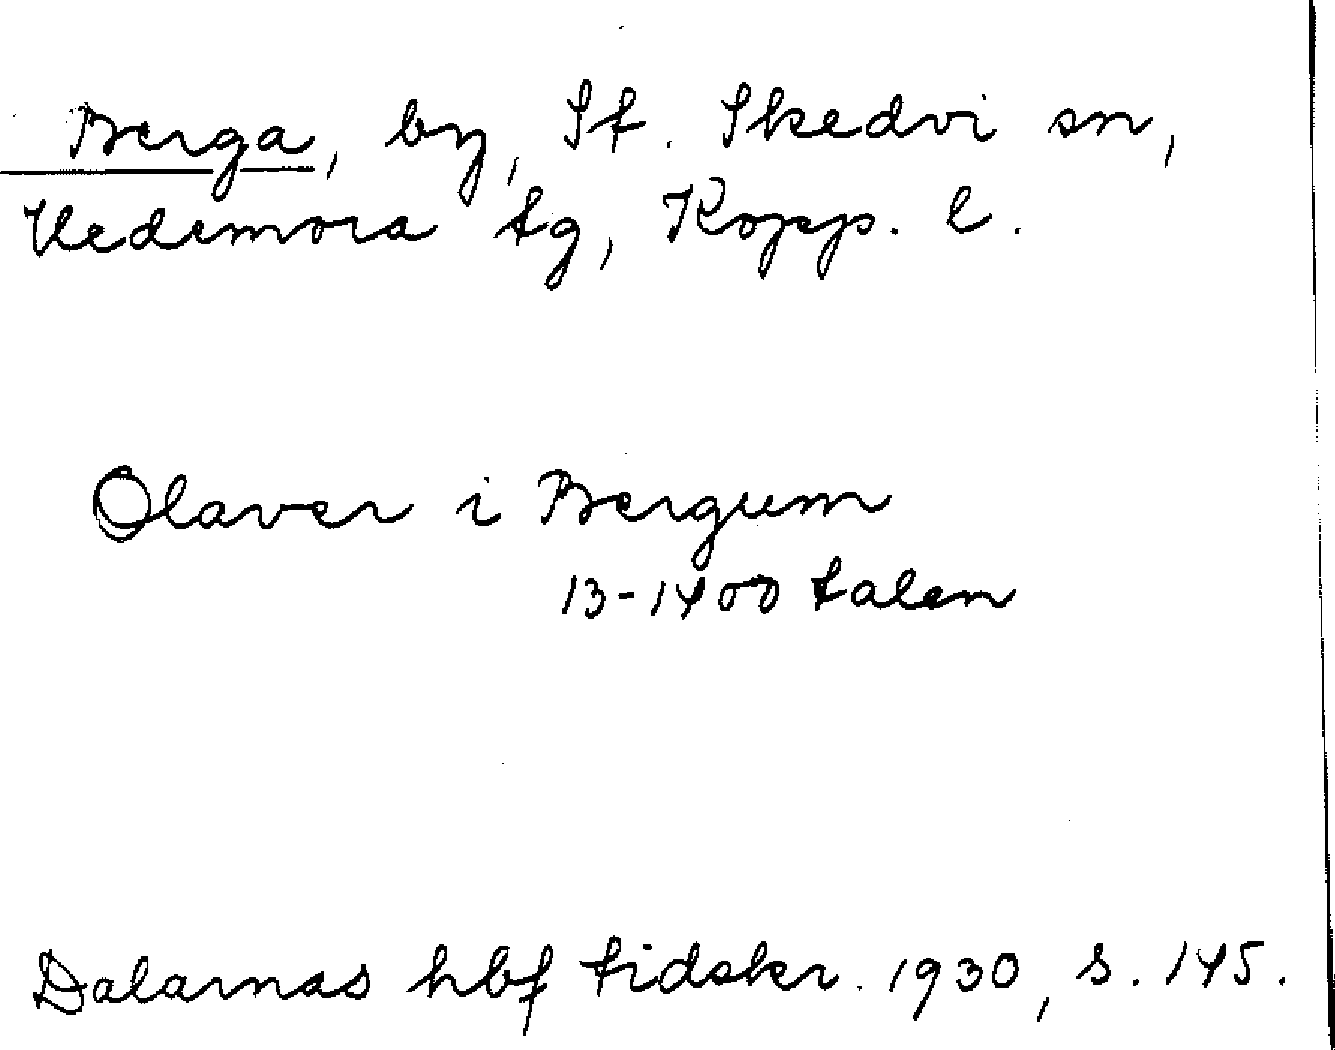 Berga, by, St. Skedvi sn,
Hedemora tg, Kopp. l.
Olaver i Bergum
13-1400 talen
Dalarnas hbf tidskr. 1930, s. 145.